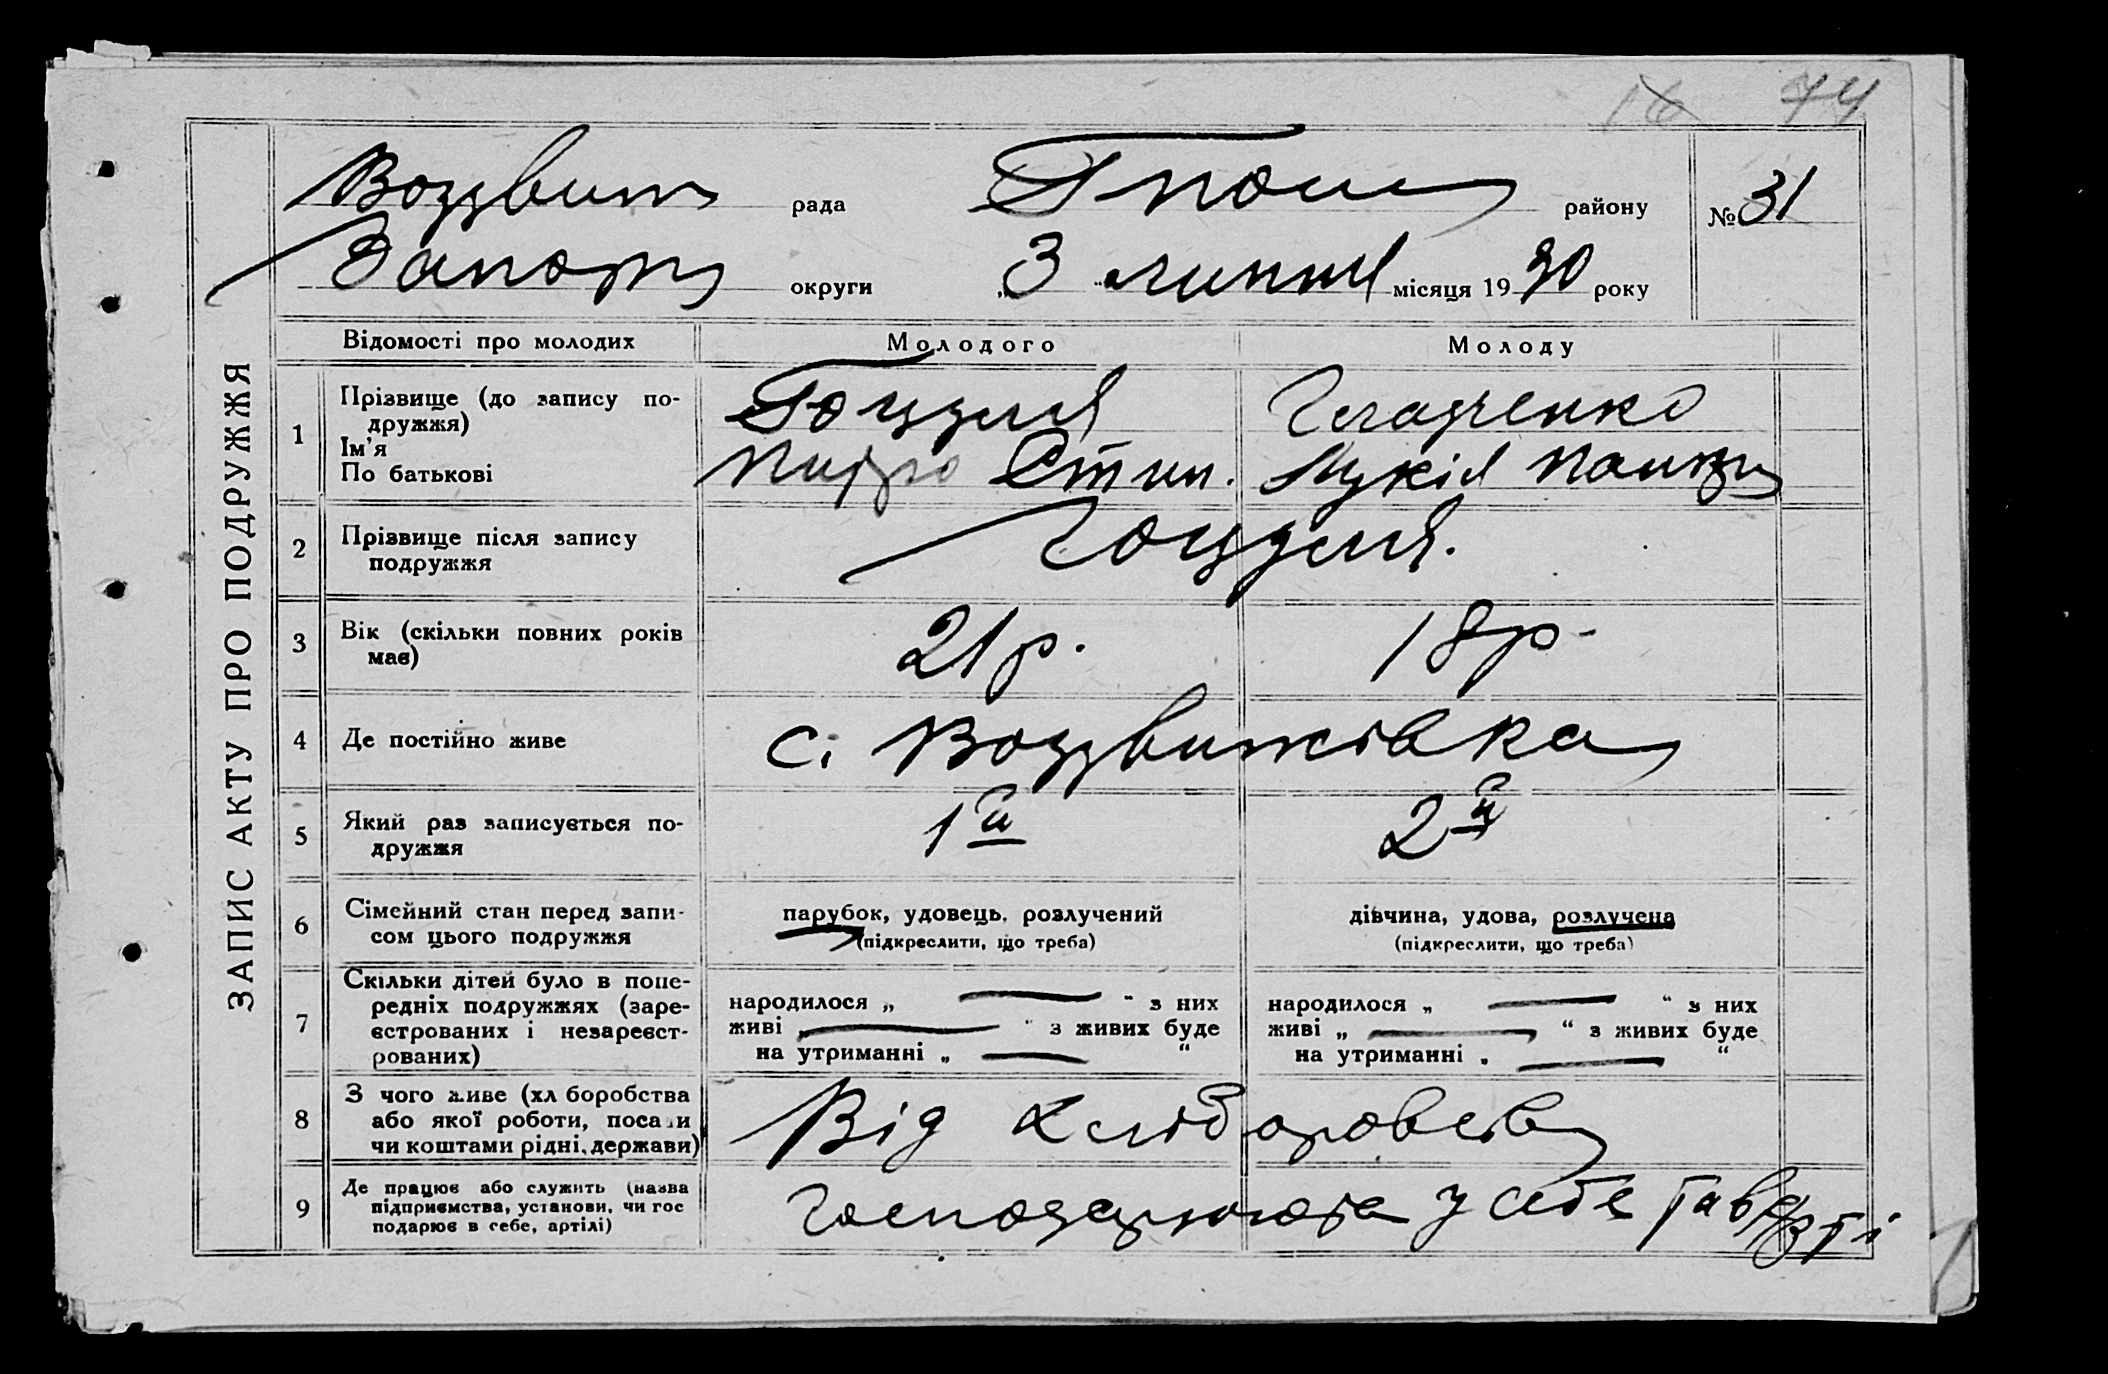 16 44
Воздвиж рада Гполе району № 31
Запоріж округи „ 3 " липня місяця 19 30 року
ЗАПИС АКТУ ПРО ПОДРУЖЖЯ
Відомості про молодих Молодого Молоду
1 Прізвище (до запису подружжя) Гоцуля
Ім'я
По батькові Мукія
2 Прізвище після запису Гоцуля.
подружжя
3 Вік (скільки повних років 21 р. 18 р.
має)
4 Де постійно живе с. Воздвижівка
5 Який раз записується по- 1й 2й
дружжя
6 Сімейний стан перед запи- парубок, удовець, розлучений дівчина, удова, розлучена
сом цього подружжя (підкреслити, що треба) (підкреслити, що треба)
7 Скільки дітей було в попе-
редніх подружжях (заре- народилося „ — " з них народилося „ — " з них
єстрованих і незареєст- живі „ — " з живих буде живі „ — " з живих буде
рованих) на утриманні „ — " на утриманні „ — "
8 З чого живе (хл боробства
або якої роботи, посади Від хліборобства
чи коштами рідні, держави)
9 Де працює або служить (назва
підприємства, установи, чи гос Господарюють у себе та в арті
подарює в себе, артілі)